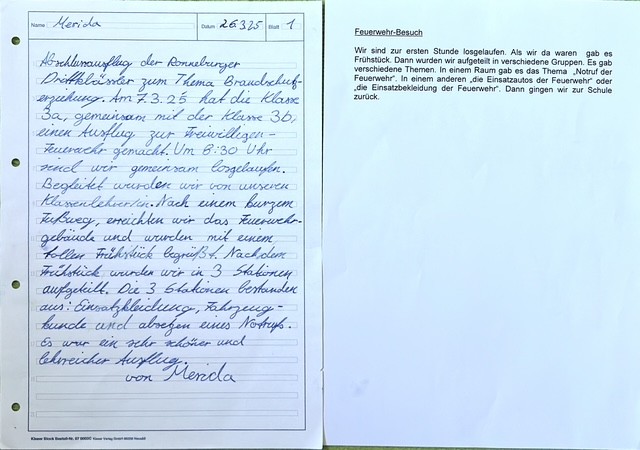 Name Merida Datum 26.3.25 Blatt 1
Abschlussausflug der Ronneburger
Drittklässler zum Thema Brandschutz-
erziehung. Am 7.3.25 hat die Klasse
3a, gemeinsam mit der Klasse 3b,
einen Ausflug zur Freiwilligen-
Feuerwehr gemacht. Um 8:30 Uhr
sind wir gemeinsam losgelaufen.
Begleitet wurden wir von unseren
Klassenlehrertin. Nach einem kurzem
Fußweg, erreichten wir das Feuerwehr-
gebäude und wurden mit einem
tollen Frühstück begrüßt. Nach dem
Frühstück wurden wir in 3 Stationen
aufgeteilt. Die 3 Stationen bestanden
aus: Einsatzkleidung, Fahrzeug-
kunde und absetzen eines Notrufs.
Es war ein sehr schöner und
lehrreicher Ausflug.
von Merida
Feuerwehr-Besuch
Wir sind zur ersten Stunde losgelaufen. Als wir da waren gab es
Frühstück. Dann wurden wir aufgeteilt in verschiedene Gruppen. Es gab
verschiedene Themen. In einem Raum gab es das Thema „Notruf der
Feuerwehr“. In einem anderen „die Einsatzautos der Feuerwehr“ oder
„die Einsatzbekleidung der Feuerwehr“. Dann gingen wir zur Schule
zurück.